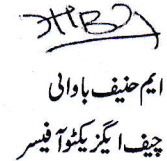 ایم حنیف باوانی
چیف ایگزیکٹو آفیسر